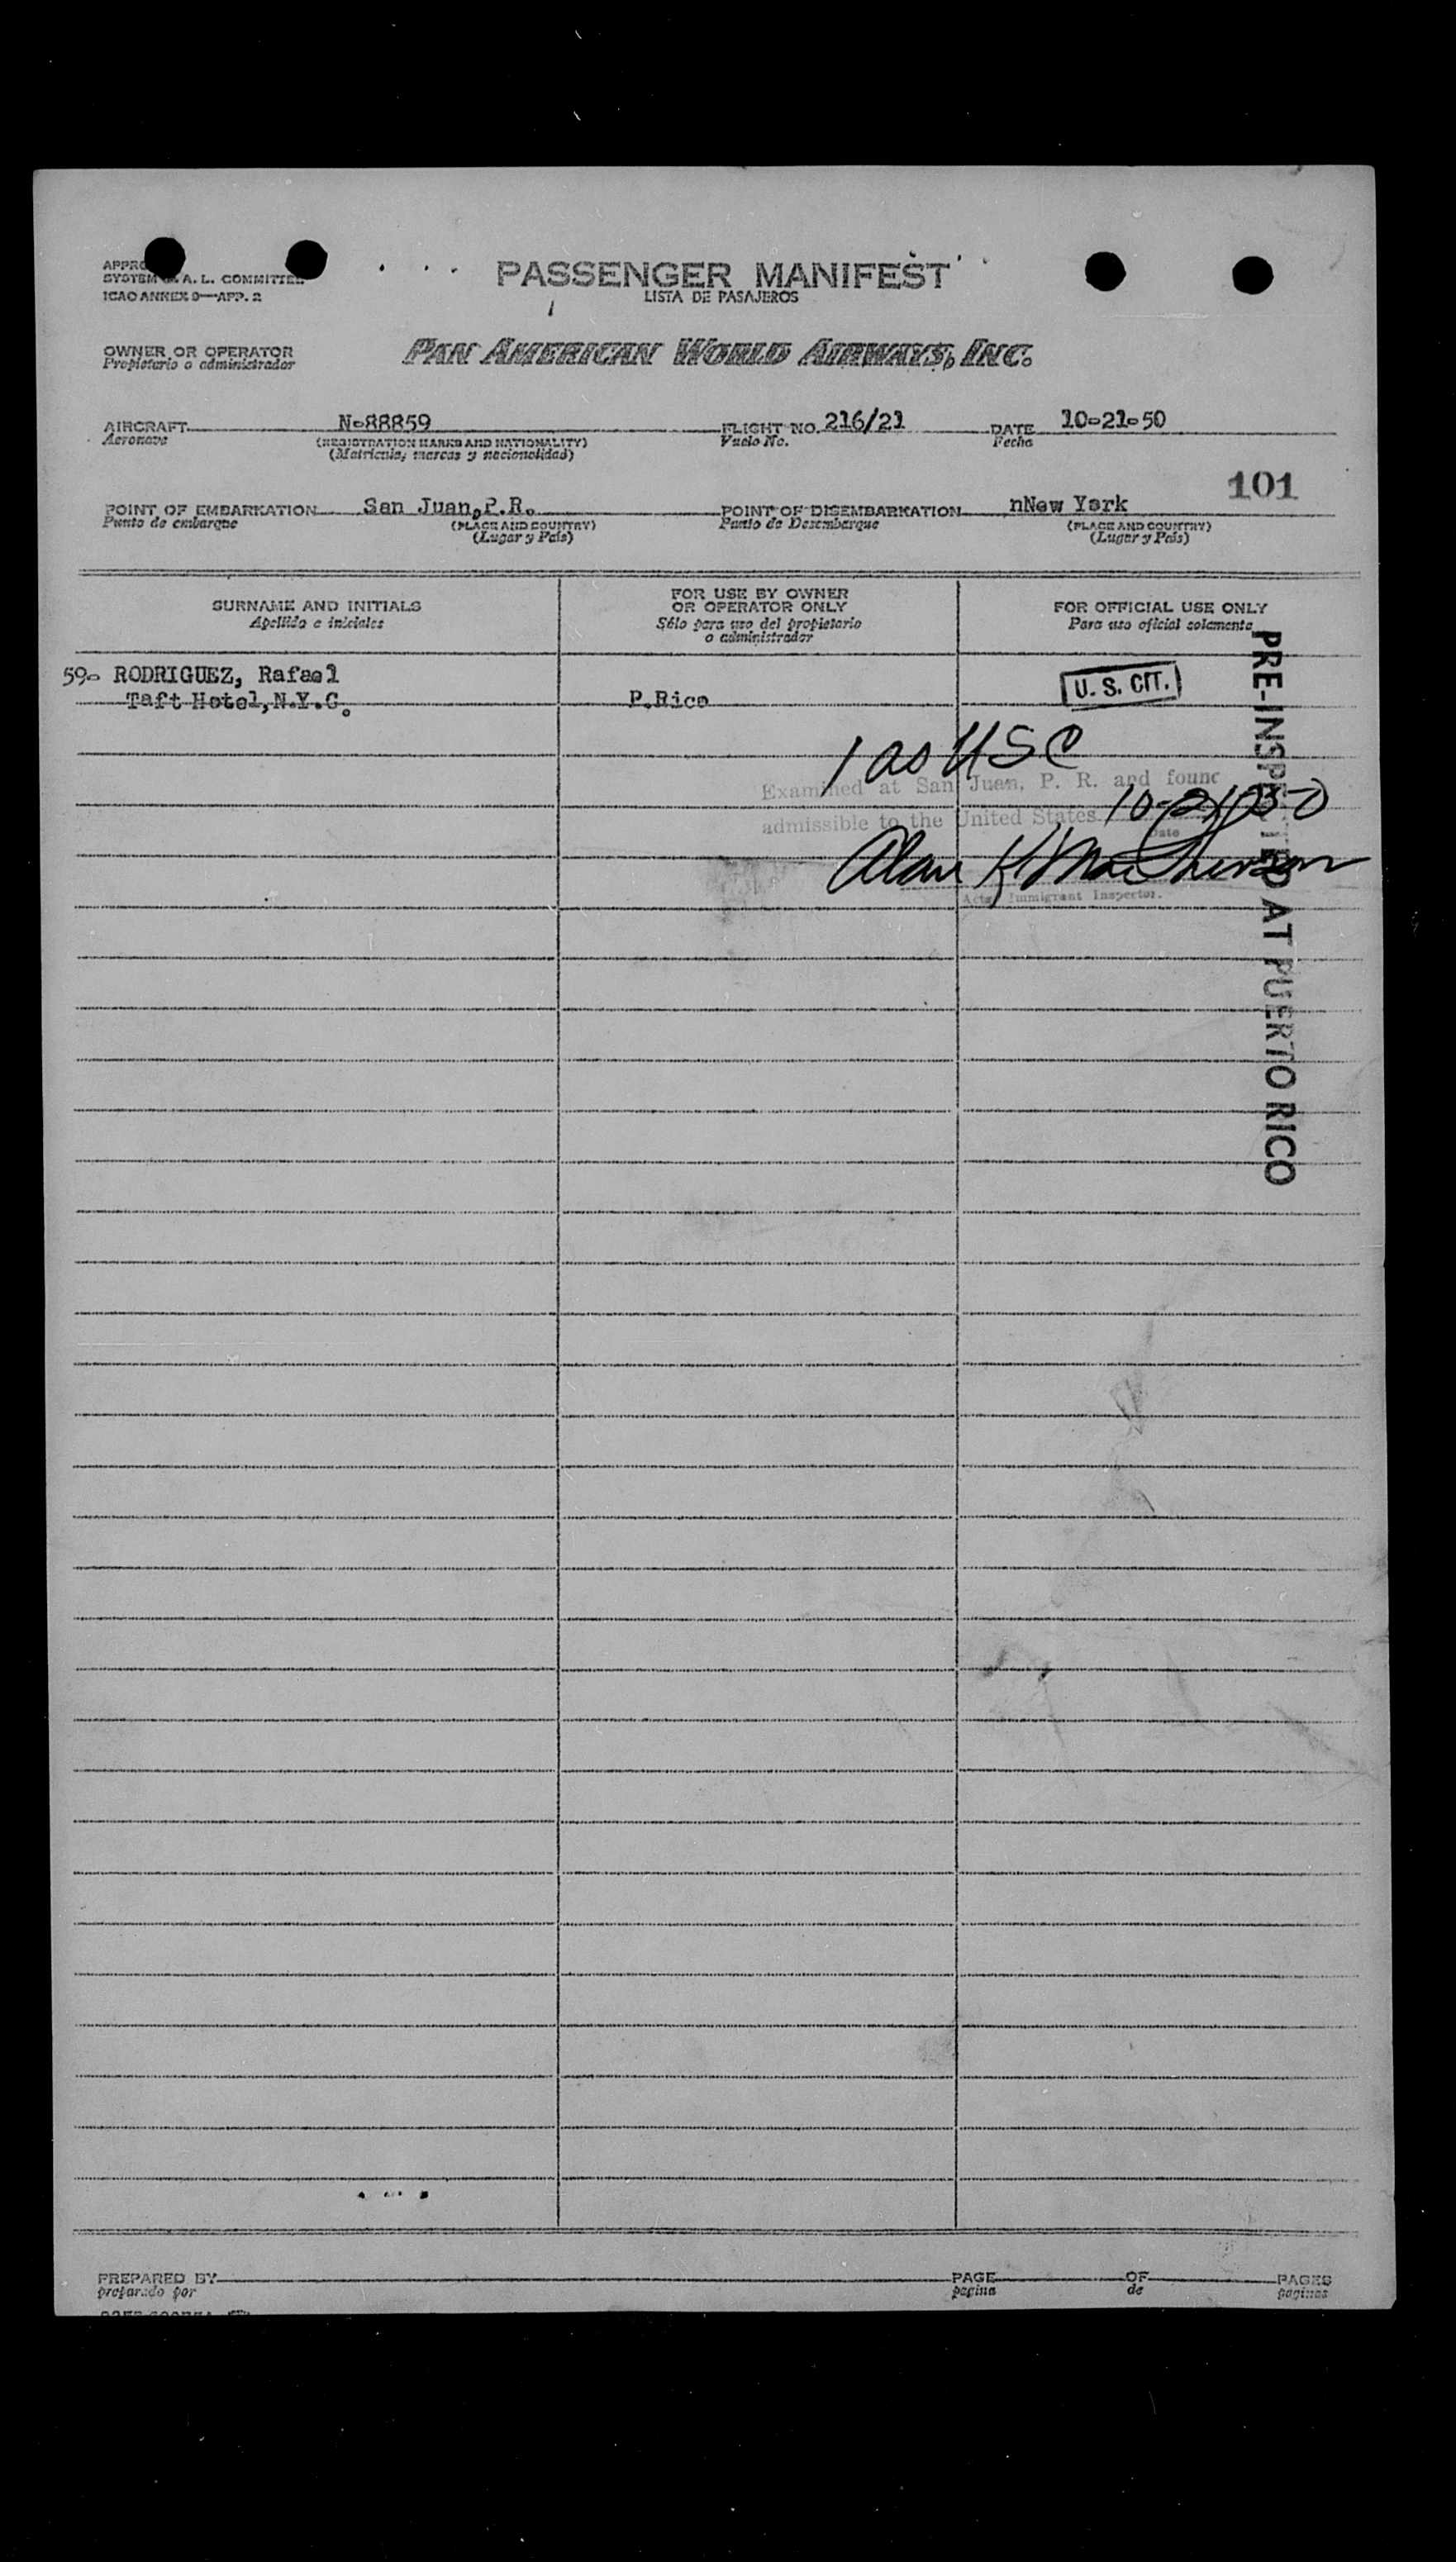 APPRO
SYSTEM A. L. COMMITTEE
ICAO ANNEX 9—APP. 2
PASSENGER MANIFEST
LISTA DE PASAJEROS
OWNER OR OPERATOR
Propietario o administrador
PAN AMERICAN WORLD AIRWAYS, INC.
AIRCRAFT N-88859 FLIGHT NO. 216/21 DATE 10-21-50
Aeronave (REGISTRATION MARKS AND NATIONALITY) Vuelo No. Fecha
(Matricula, marcas y nacionalidad)
101
POINT OF EMBARKATION San Juan,P.R. POINT OF DISEMBARKATION nNew York
Punto de embarque (PLACE AND COUNTRY) Punto de Desembarque (PLACE AND COUNTRY)
(Lugar y País) (Lugar y País)
SURNAME AND INITIALS
Apellido e iniciales
FOR USE BY OWNER
OR OPERATOR ONLY
Sólo para uso del propietario
o administrador
FOR OFFICIAL USE ONLY
Para uso oficial solamente
59- RODRIGUEZ, Rafael
Taft Hotel,N.Y.C. P.Rico
U. S. CIT.
PRE-INSPECTED AT PUERTO RICO
1 as USC
Examined at San Juan, P. R. and found
admissible to the United States 10-21-50
Date
Alan K
Immigrant Inspector.
PREPARED BY PAGE OF PAGES
preparado por pagina de paginas